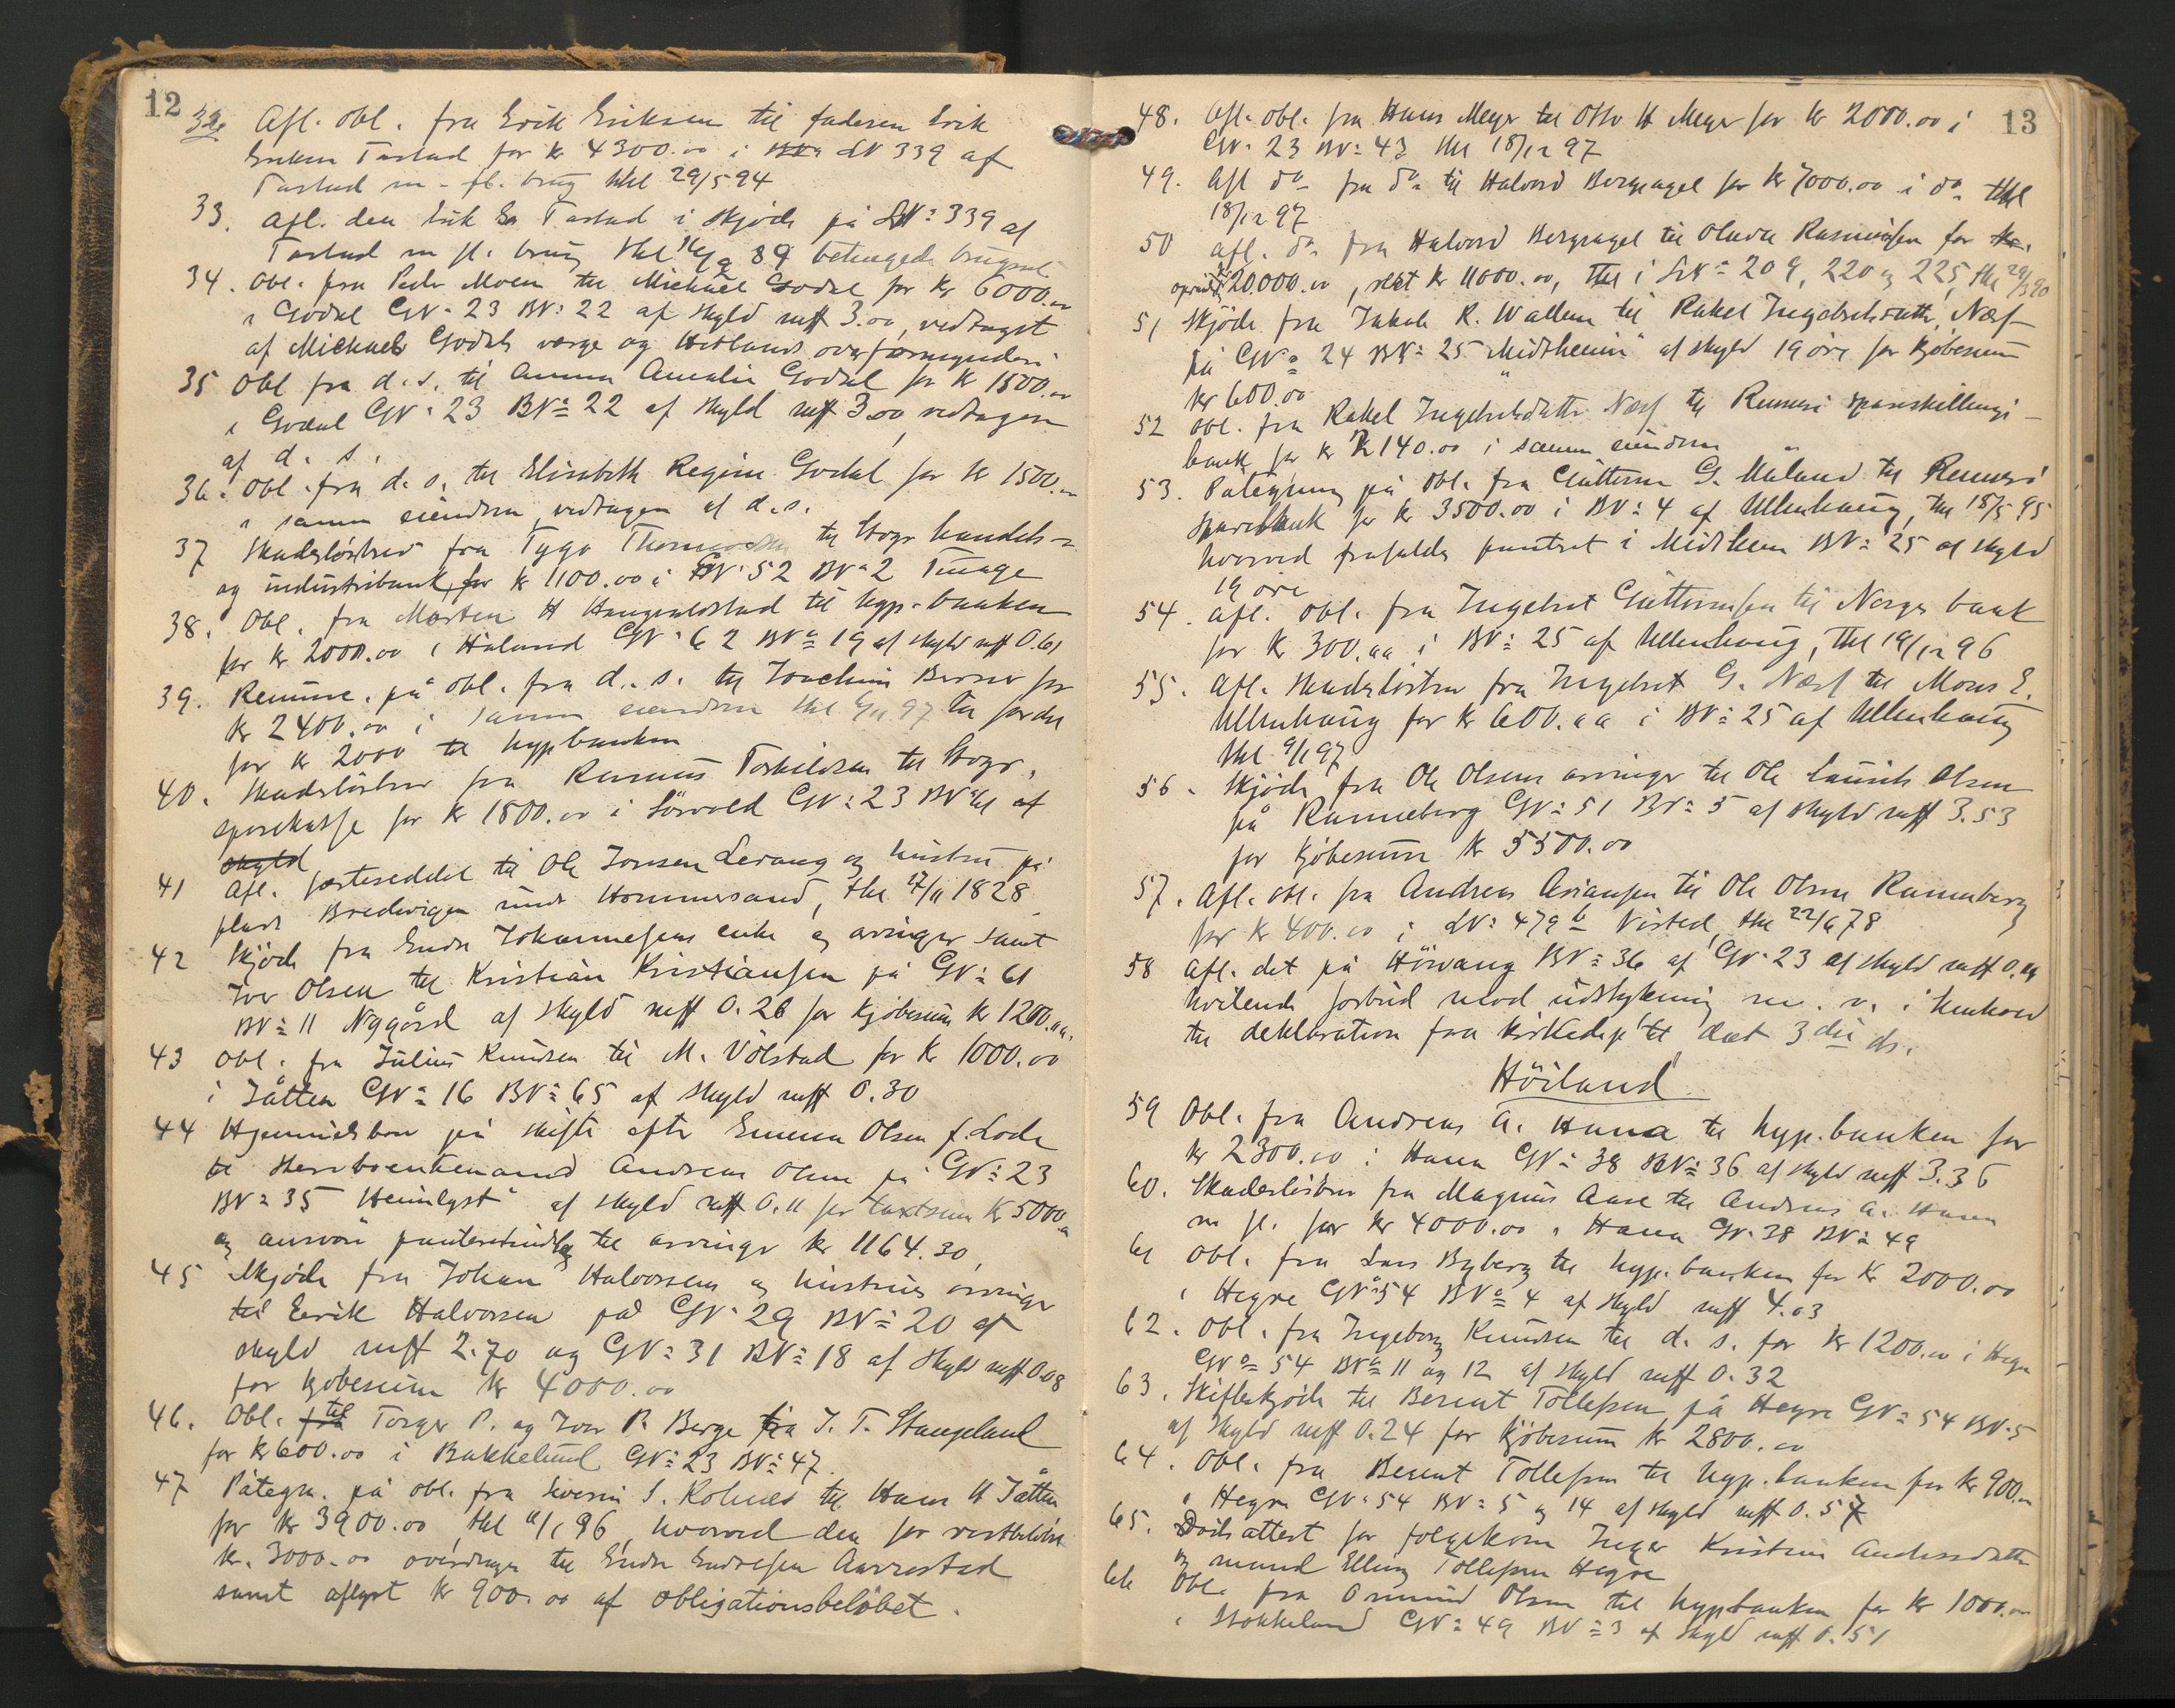 12
32. Afl. obl. fra Erik Eriksen til faderen Erik
Eriksen Tastad for kr 4300.00 i LN 339 af
Tastad m. fl. brug thl 29/5 94
33. Afl. den Erik Er Tastad i skjöde på LN: 339 af
Tastad m fl. brug thl 89 betingede brugsret
34. Obl. fra Peder Moen til Michael Godal for kr 6000.00
i Godal GN. 23 BN: 22 af skyld mrk 3.00, vedtaget
af Michael Godals værge og Hetlands overformynderi
35 Obl fra d. s. til Anna Amalie Godal for kr 1500.00
i Godal GN. 23 BN: 22 af skyld mrk 3.00, vedtagen
af d. s.
36. Obl. fra d. s. til Elisabeth Regine Godal for kr 1500.00
i samme eiendom, vedtagen af d. s.
37 Skadeslösbrev fra Tygo Thomassen til Stvgr handels-
og industribank for kr 1100.00 i GN. 52 BN: 2 Tunge
38. Obl. fra Morten H Haugvaldstad til hyp. banken
for kr. 2000.00 i Håland GN. 62 BN: 19 af skyld mrk 0.61
39. Renunc. på obl. fra d. s. til Joachim Berner for
kr 2400.00 i samme eiendom thl 6/11 97 til fordel
for kr 2000 til hypbanken
40. Skadeslösbrev fra Rasmus Torkildsen til Stvgr.
sparekasse for kr 1800.00 i Sörvold GN: 23 BN: 61 af
skyld
41 Afl. festeseddel til Ole Jonsen Levang og hustru på
plads Bredevigen under Hommersand, thl 27/11 1828
42 Skjöde fra Endre Johannesens enke og arvinger samt
Iver Olsen til Kristian Kristiansen på GN: 61
BN: 11 Nygård af skyld mrk 0.26 for kjöbesum kr 1200.00.
43 Obl. fra Julius Knudsen til M. Völstad for kr 1000.00
i Jåtten GN: 16 BN: 65 af skyld mrk 0.30
44 Hjemmelsbrev på skifte efter Emma Olsen f. Lode
til Andreas Olsen på GN: 23
BN: 35 "Heimlyst" af skyld mrk 0.11 for taxtsum kr 5000.00
og ansvar panteretindlæg til arvinger kr 1164.30
45 Skjöde fra Johan Halvorsens og hustrues arvinger
til Eerik Halvorsen på GN. 29 BN: 20 af
skyld mrk 2.70 og GN: 31 BN: 18 af skyld mrk 0.08
for kjöbesum kr 4000.00
46. Obl. til Torger P. og Iver P. Berge fra J. T. Stangeland
for kr 600.00 i Bakkelund GN: 23 BN: 47.
47 Påtegn. på obl. fra Severin S. Kolnes til Hans H Jåtten
for kr 3900.00 thl 11/1 96, hvorved den for restbelöbet
kr. 3000.00 overdrages til Endre Endresen Aarrestad
samt aflyst kr 900.00 af obligationsbelöbet.
13
48. Afl. obl. fra Hans Meyer til Otto H Meyer for kr 2000.00 i
GN. 23 BN: 43 thl 18/12 97
49. Afl do fra do til Halvord Bergsagel for kr 7000.00 i do thl
18/12 97
50 Afl. do fra Halvord Bergsagel til Olava Rasmussen for
oprindl 20.000.00, rest kr 11000.00, i LN: 209, 220 og 225, thl 29/3 90
51 Skjöde fra Jakob R. Wallem til Rakel Ingebretsdatter Næs
på GN: 24 BN: 25 "Midtheim" af skyld 19 öre for kjöbesum
kr 600.00
52 Obl. fra Rakel Ingebretsdatter Næss til Rennesö spareskillings-
bank for kr 140.00 i samme eiendom
53. Påtegning på obl. fra Guttorm G. Maland til Rennesö
sparebank for kr 3500.00 i BN: 4 af Ullenhaug, thl 18/5 95
hvorved frafaldes pantret i Midtheim BN: 25 af skyld
19 öre
54. Afl. obl. fra Ingebret Guttormsen til Norges bank
for kr 300.00 i BN: 25 af Ullenhaug, thl 19/12 96
55. Afl. Skadeslösbrev fra Ingebret G. Næss til Mons E.
Ullenhaug for kr 600.00 i BN: 25 af Ullenhaug
thl 9/1 97
56. Skjöde fra Ole Olsens arvinger til Ole Laurits Olsen
på Ranneberg GN: 51 BN: 5 af skyld mrk 3.53
for kjöbesum kr 5500.00
57. Afl. obl. fra Andreas Asiansen til Ole Olsen Ranneberg
for kr 400.00 i LN: 479 b Visted, thl 22/6 78
58 Afl. det på Hörvang BN: 36 af GN. 23 af skyld mrk 0.
hvilende forbud mod udstykning m. v. i henhold
til deklaration fra kirkedep'tet dat 3die ds.
Höiland
59 Obl. fra Andreas A. Hana til hyp. banken for
kr 2300.00 i Hana GN: 38 BN: 36 af skyld mrk 3.36
60. Skadeslösbrev fra Magnus Aase til Andreas A. Hana
m fl. for kr 4000.00 i Hana GN. 38 BN: 49
61 Obl. fra Lars Byberg til hyp. banken for kr 2000.00
i Hegre GN: 54 BN: 4 af skyld mrk 4.03
62. Obl. fra Ingeborg Knudsen til d. s. for kr 1200.00 i Hegre
GN: 54 BN: 11 og 12 af skyld mrk 0.32
63. Skifteskjöde til Berent Tollefsen på Hegre GN: 54 BN. 5
af skyld mrk 0.24 for kjöbesum kr 2800.00
64. Obl. fra Berent Tollefsen til hyp. banken for kr 900.00
i Hegre GN. 54 BN: 5 og 14 af skyld mrk 0.57
65. Dödsattest for folgekone Inger Kristine Andersdatter
og mand Elling Tollefsen Hegre
66 Obl. fra Ommund Olsen til hypbanken for kr 1000.00
i Stokkeland GN: 49 BN: 3 af skyld mrk 0.51